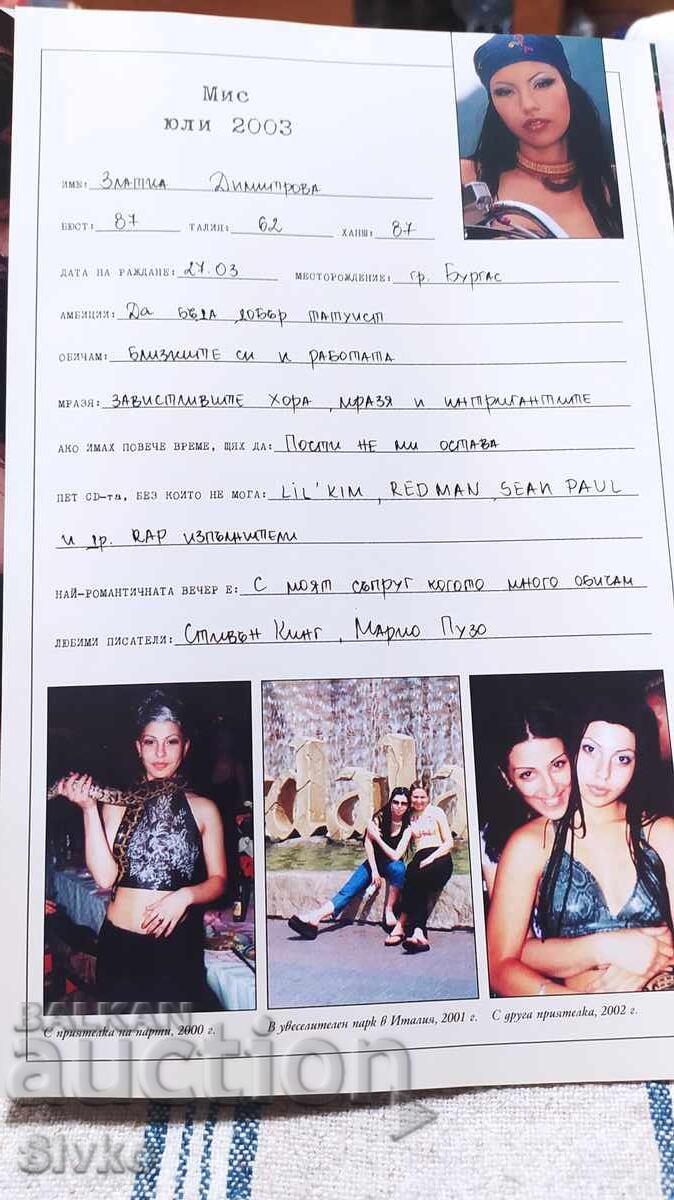 Мис
юли 2003
ИМЕ: Златка Димитрова
БЮСТ: 87 ТАЛИЯ: 62 ХАНШ: 87
ДАТА НА РАЖДАНЕ: 27.03 МЕСТОРОЖДЕНИЕ: гр. Бургас
АМБИЦИИ: Да бъда добър татуист
ОБИЧАМ: Близките си и работата
МРАЗЯ: Завистливите хора, мразя и интригантите
АКО ИМАХ ПОВЕЧЕ ВРЕМЕ, ЩЯХ ДА: Почти не ми остава
ПЕТ CD-та, БЕЗ КОИТО НЕ МОГА: LIL'KIM, REDMAN, SEAN PAUL
и др. RAP изпълнители
НАЙ-РОМАНТИЧНАТА ВЕЧЕР Е: С моят съпруг когото много обичам
ЛЮБИМИ ПИСАТЕЛИ: Стивън Кинг, Марио Пузо
dala
С приятелка на парти, 2000 г. В увеселителен парк в Италия, 2001 г. С друга приятелка, 2002 г.
BALKAN
auction
Slvke